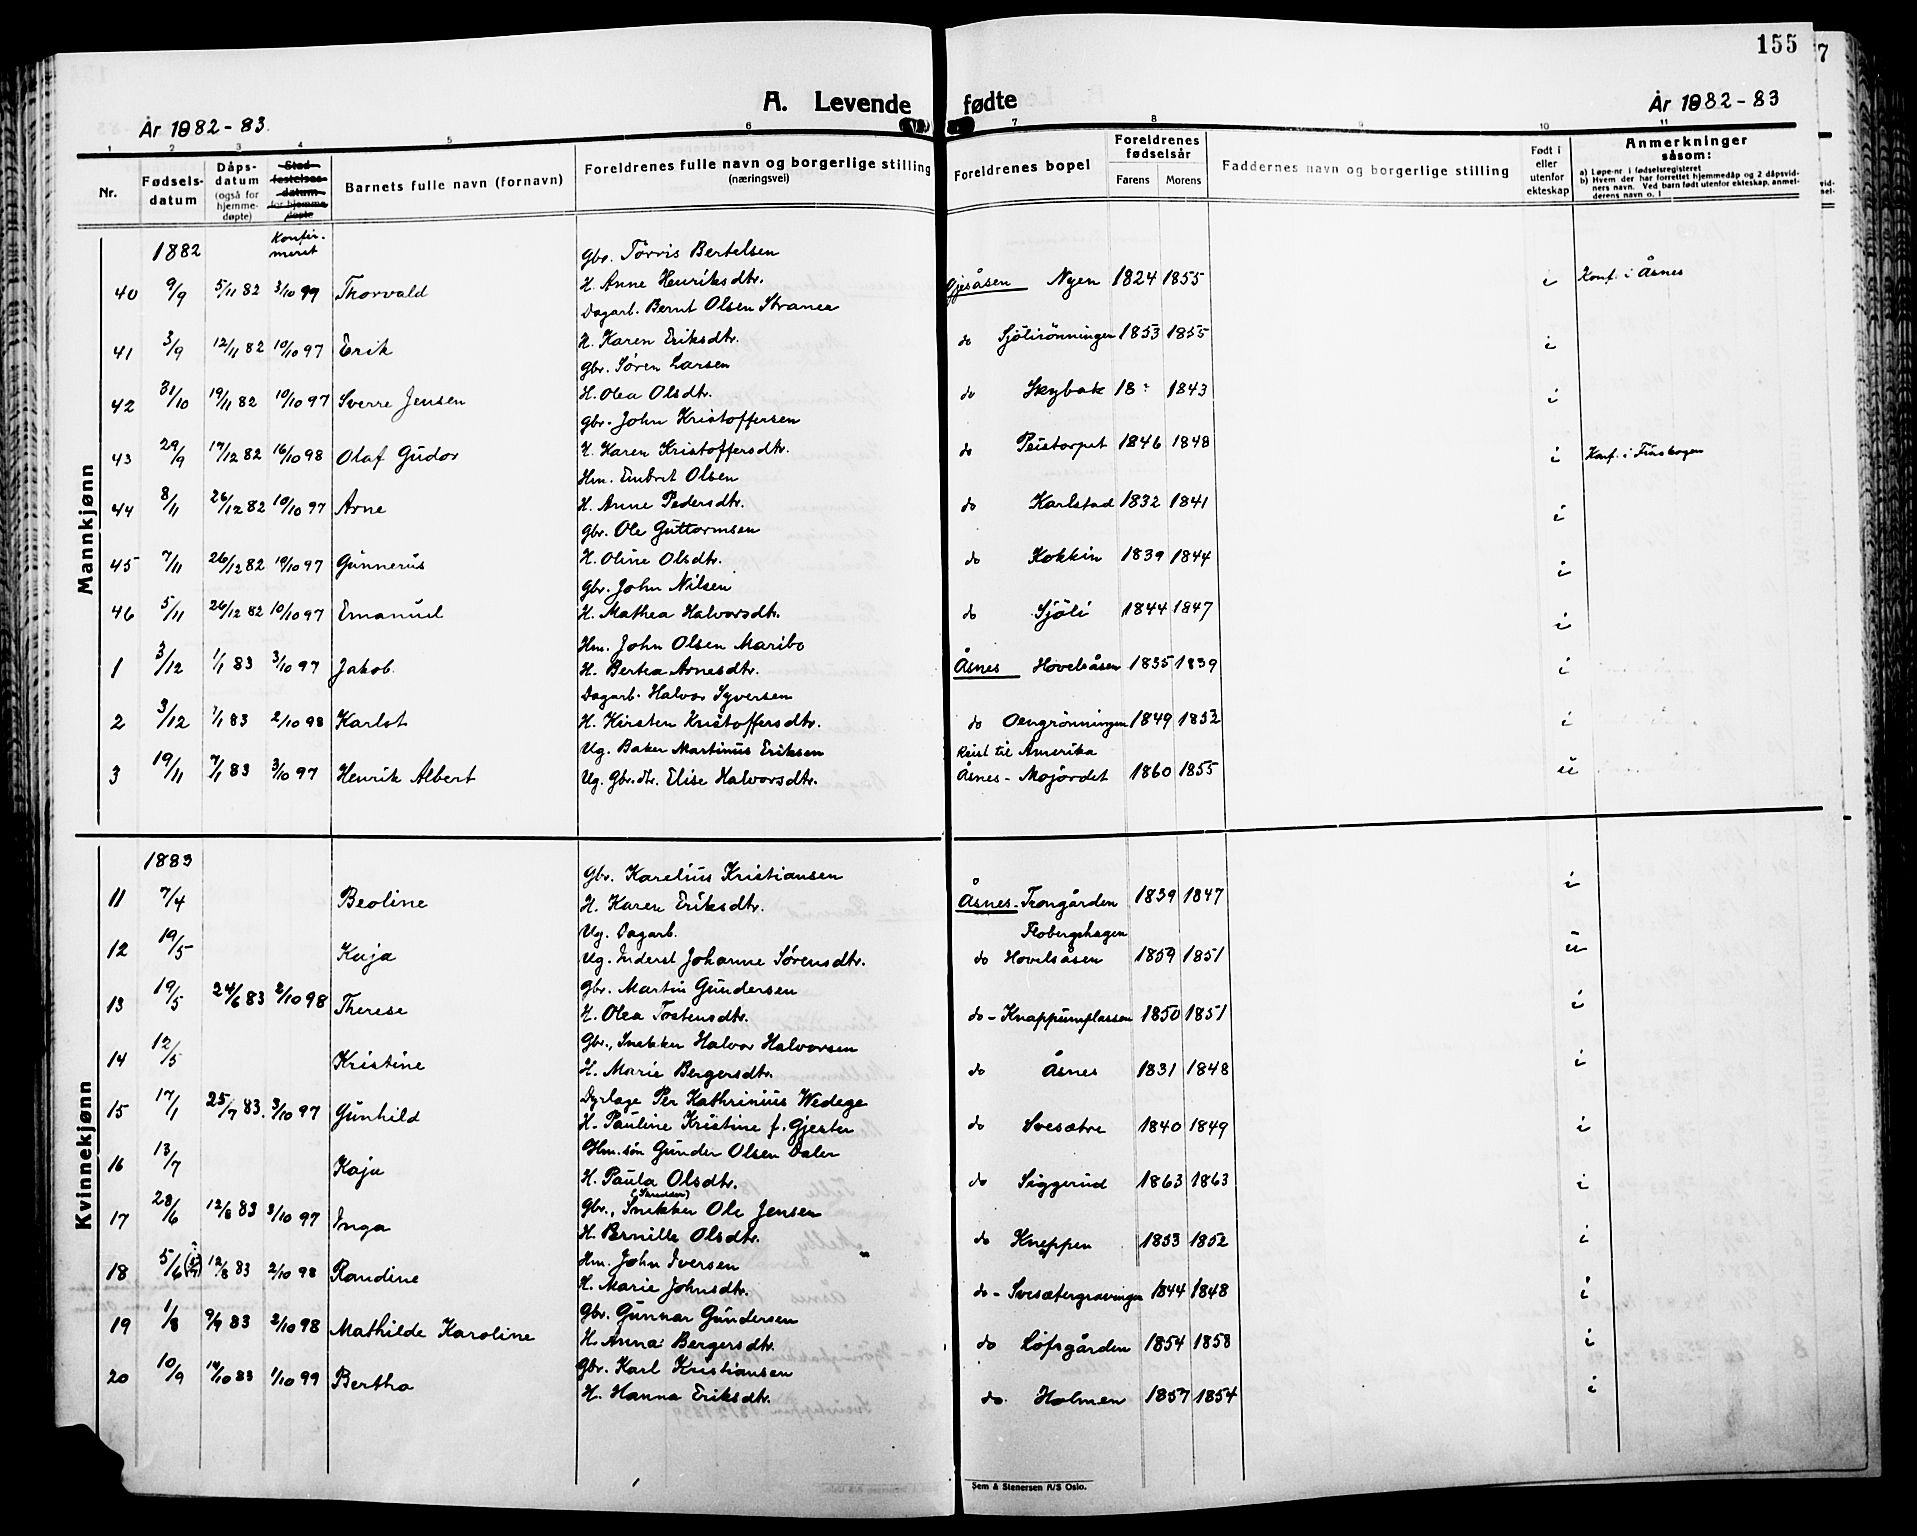 155
7
A. Levende fødte
År 1882-83.
År 1882-83
1 2 3 4 5 6 7 8 9 10 11
Nr.
Fødsels-
datum
Dåps-
datum
(også for
hjemme-
døpte)
Stad-
festelses-
datum
for hjemme-
døpte
Barnets fulle navn (fornavn)
Foreldrenes fulle navn og borgerlige stilling
(næringsvei)
Foreldrenes bopel
Foreldrenes
fødselsår
Farens Morens
Faddernes navn og borgerlige stilling
Født i
eller
utenfor
ekteskap
Anmerkninger
såsom:
a) Løpe-nr. i fødselsregisteret
b) Hvem der har forrettet hjemmedåp og 2 dåpsvid-
ners navn. Ved barn født utenfor ekteskap, anmel-
derens navn o. l
Mannkjønn
1882
Konfir-
meret
Gbr. Torris Bertelsen
40 9/9 5/11 82 3/10 99 Thorvald H. Anne Henriksdtr. Gjesåsen Nyen 1824 1855 i Konf. i Åsnes
Dagarb. Bernt Olsen Stranea
41 3/9 12/11 82 10/10 97 Erik H. Karen Eriksdtr. do Sjölirönningen 1853 1855 i
Gbr. Søren Larsen
42 31/10 19/11 82 10/10 97 Sverre Jensen H. Olea Olsdtr. do Skybak 18: 1843 i
Gbr. John Kristoffersen
43 29/9 17/12 82 16/10 98 Olaf Gudor H. Karen Kristoffersdtr. do Peistorpet 1846 1848 i Konf. i Finskogen
Hm. Embret Olsen
44 8/11 26/12 82 10/10 97 Arne H. Anne Pedersdtr. do Karlstad 1832 1841 i
Gbr. Ole Guttormsen
45 7/11 26/12 82 10/10 97 Gunnerus H. Oline Olsdtr. do Kokkin 1839 1844 i
Gbr. John Nilsen
46 5/11 26/12 82 10/10 97 Emanuel H. Mathea Halvorsdtr. do Sjöli 1844 1847 i
Hm. John Olsen Maribo
1 3/12 1/1 83 3/10 97 Jakob. H. Bertea Arnesdtr. Åsnes Hovelsåsen 1835 1839 i
Dagarb. Halvor Syversen
2 3/12 1/1 83 2/10 98 Karlot H. Kirsten Kristoffersdtr. do Oengrönningen 1849 1852 i
Ug. Baker Martinus Eriksen Reist til Amerika
3 19/11 7/1 83 3/10 97 Henrik Albert Ug. Gbr.dtr. Elise Halvorsdtr. Åsnes - Mojordet 1860 1855 u
Kvinnekjønn
1883
Gbr. Karelius Kristiansen
11 7/4 Beoline H. Karen Eriksdtr. Åsnes - Trongården 1839 1847 i
Ug. Dagarb. Flobergshagen
12 19/5 Kaja Ug. Inderst Johanne Sørensdtr. do Hovelsåsen 1859 1851 u
Gbr. Martin Gundersen
13 19/5 24/6 83 2/10 98 Therese H. Olea Tostensdtr. do - Knappumplassen 1850 1851 i
Gbr., Snekker Halvor Halvorsen
14 12/5 Kristine H. Marie Bergersdtr. do Åsnes 1831 1848 i
Dyrlæge Per Kathrinius Wedege
15 17/1 25/7 83. 3/10 97 Gunhild H. Pauline Kristine f. Gjester do Svesætre 1840 1849 i
Hm.søn Gunder Olsen Daler
16 13/7 Kaja H. Paula Olsdtr. do Siggerud 1863 1863 i
Gbr., Snekker Ole Jensen
17 28/6 12/8 83 3/10 97 Inga H. Pernille Olsdtr. do Kneppen 1853 1852 i
Hm. John Iversen
18 5/6 12/8 83 2/10 98 Randine H. Marie Johnsdtr. do - Svesætergravingen 1844 1848 i
Gbr. Gunnar Gundersen
19 1/8 9/9 83 2/10 98 Mathilde Karoline H. Anna Bergersdtr. do Løfsgården 1854 1858 i
Gbr. Karl Kristiansen
20 10/9 14/10 83 1/10 99 Bertha H. Hanna Eriksdtr. do. Holmen 1857 1854 i
Sem & Stenersen A/S Oslo.